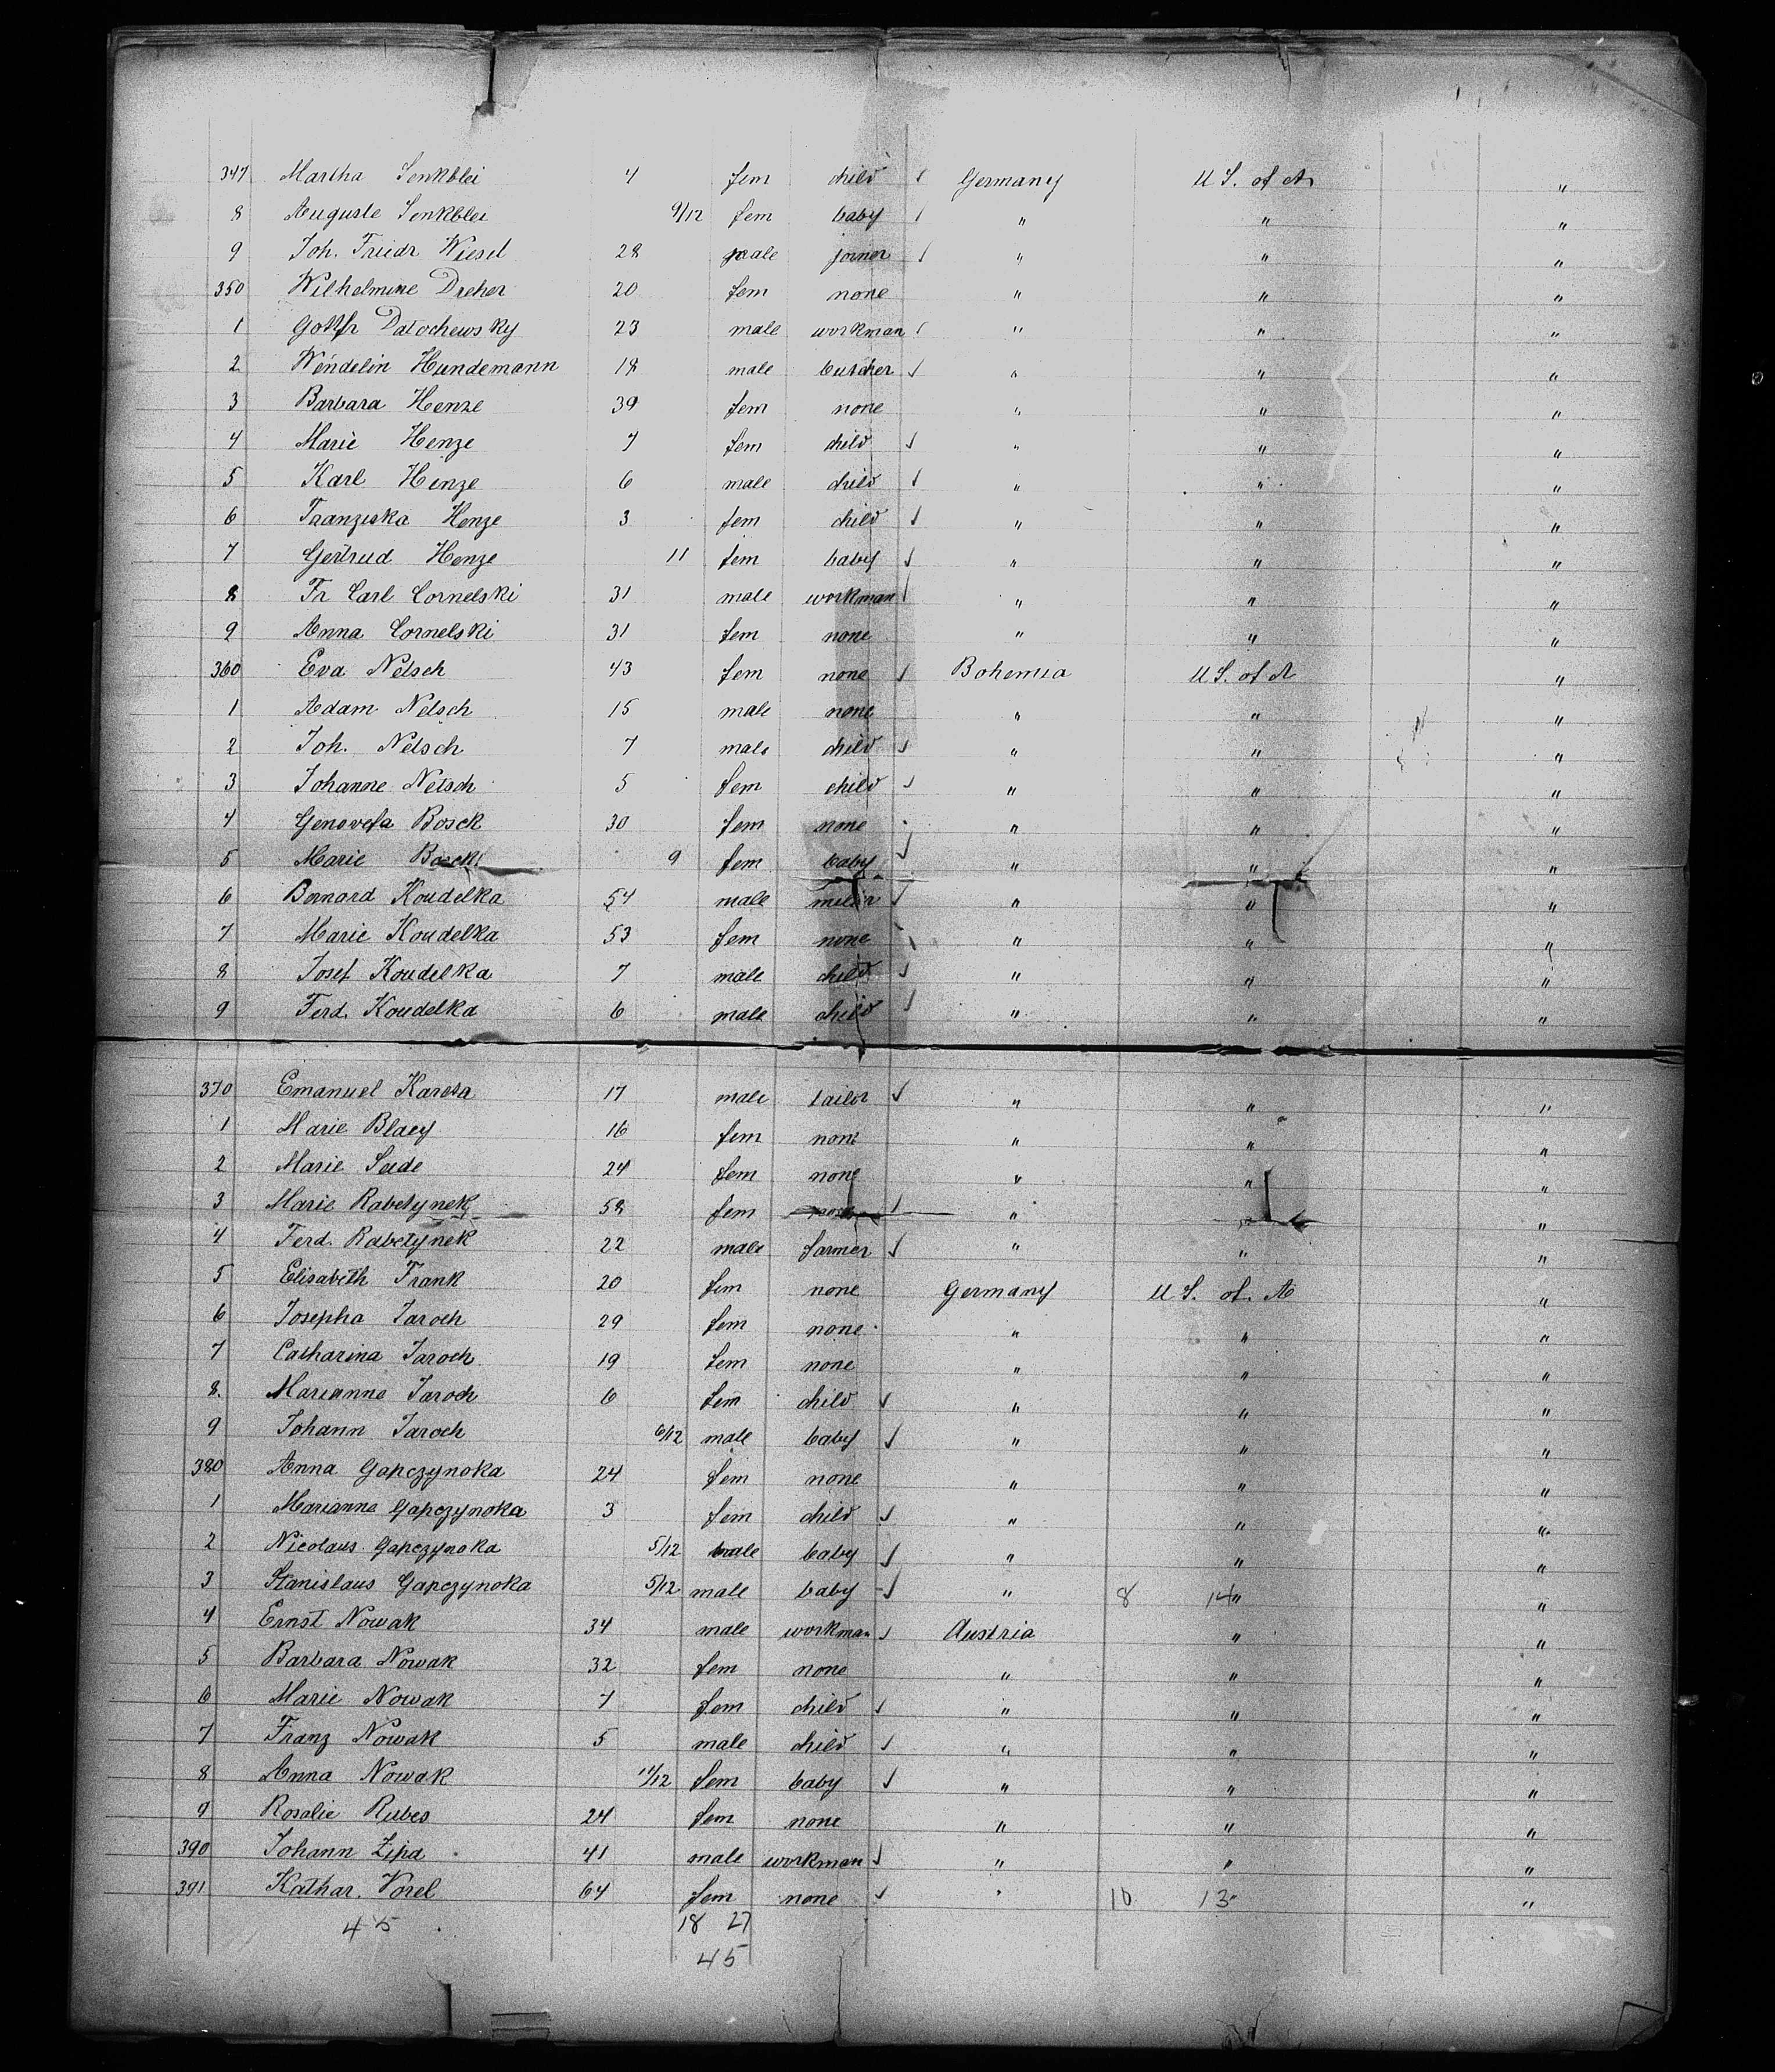 347 Martha Senkblei 4 fem child Germany U S. of A "
8 Auguste Senkblei 9/12 fem baby " " "
9 Joh. Friedr Wiesel 28 male joiner " " "
350 Wilhelmine Dreher 20 fem none " " "
1 Gottfr Datochewsky 23 male workman " " "
2 Wendelin Hundemann 18 male butcher " " "
3 Barbara Henze 39 fem none " " "
4 Marie Henze 7 fem child " " "
5 Karl Henze 6 male child " " "
6 Franziska Henze 3 fem child " " "
7 Gertrud Henze 11 fem baby " " "
8 Fr Carl Cornelski 31 male workman " " "
9 Anna Cornelski 31 fem none " " "
360 Eva Netsch 43 fem none Bohemia U S. of A "
1 Adam Netsch 15 male none " " "
2 Joh. Netsch 7 male child " " "
3 Johanne Netsch 5 fem child " " "
4 Genovefa Bosck 30 fem none " " "
5 Marie Bosck 9 fem baby " " "
6 Bernard Koudelka 54 male miller " " "
7 Marie Koudelka 53 fem none " " "
8 Josef Koudelka 7 male child " " "
9 Ferd. Koudelka 6 male child " " "
370 Emanuel Karesa 17 male tailor " " "
1 Marie Blaey 16 fem none " " "
2 Marie Sude 24 fem none " " "
3 Marie Rabetynek 58 fem none " " "
4 Ferd. Rabetynek 22 male farmer " " "
5 Elisabeth Frank 20 fem none Germany U S. of A "
6 Josepha Jaroch 29 fem none " " "
7 Catharina Jaroch 19 fem none " " "
8. Marianna Jaroch 6 fem child " " "
9 Johann Jaroch 6/12 male baby " " "
380 Anna Gapczynoka 24 fem none " " "
1 Marianna Gapczynoka 3 fem child " " "
2 Nicolaus Gapczynoka 5/12 male baby " " "
3 Stanislaus Gapczynoka 5/12 male baby " 8 14 " "
4 Ernst Nowak 34 male workman Austria " "
5 Barbara Nowak 32 fem none " " "
6 Marie Nowak 7 fem child " " "
7 Franz Nowak 5 male child " " "
8 Anna Nowak 11/12 fem baby " " "
9 Rosalie Rubes 24 fem none " " "
390 Johann Zipa 41 male workman " " "
391 Kathar. Vorel 64 fem none " 10 13 " "
45 18 27
45